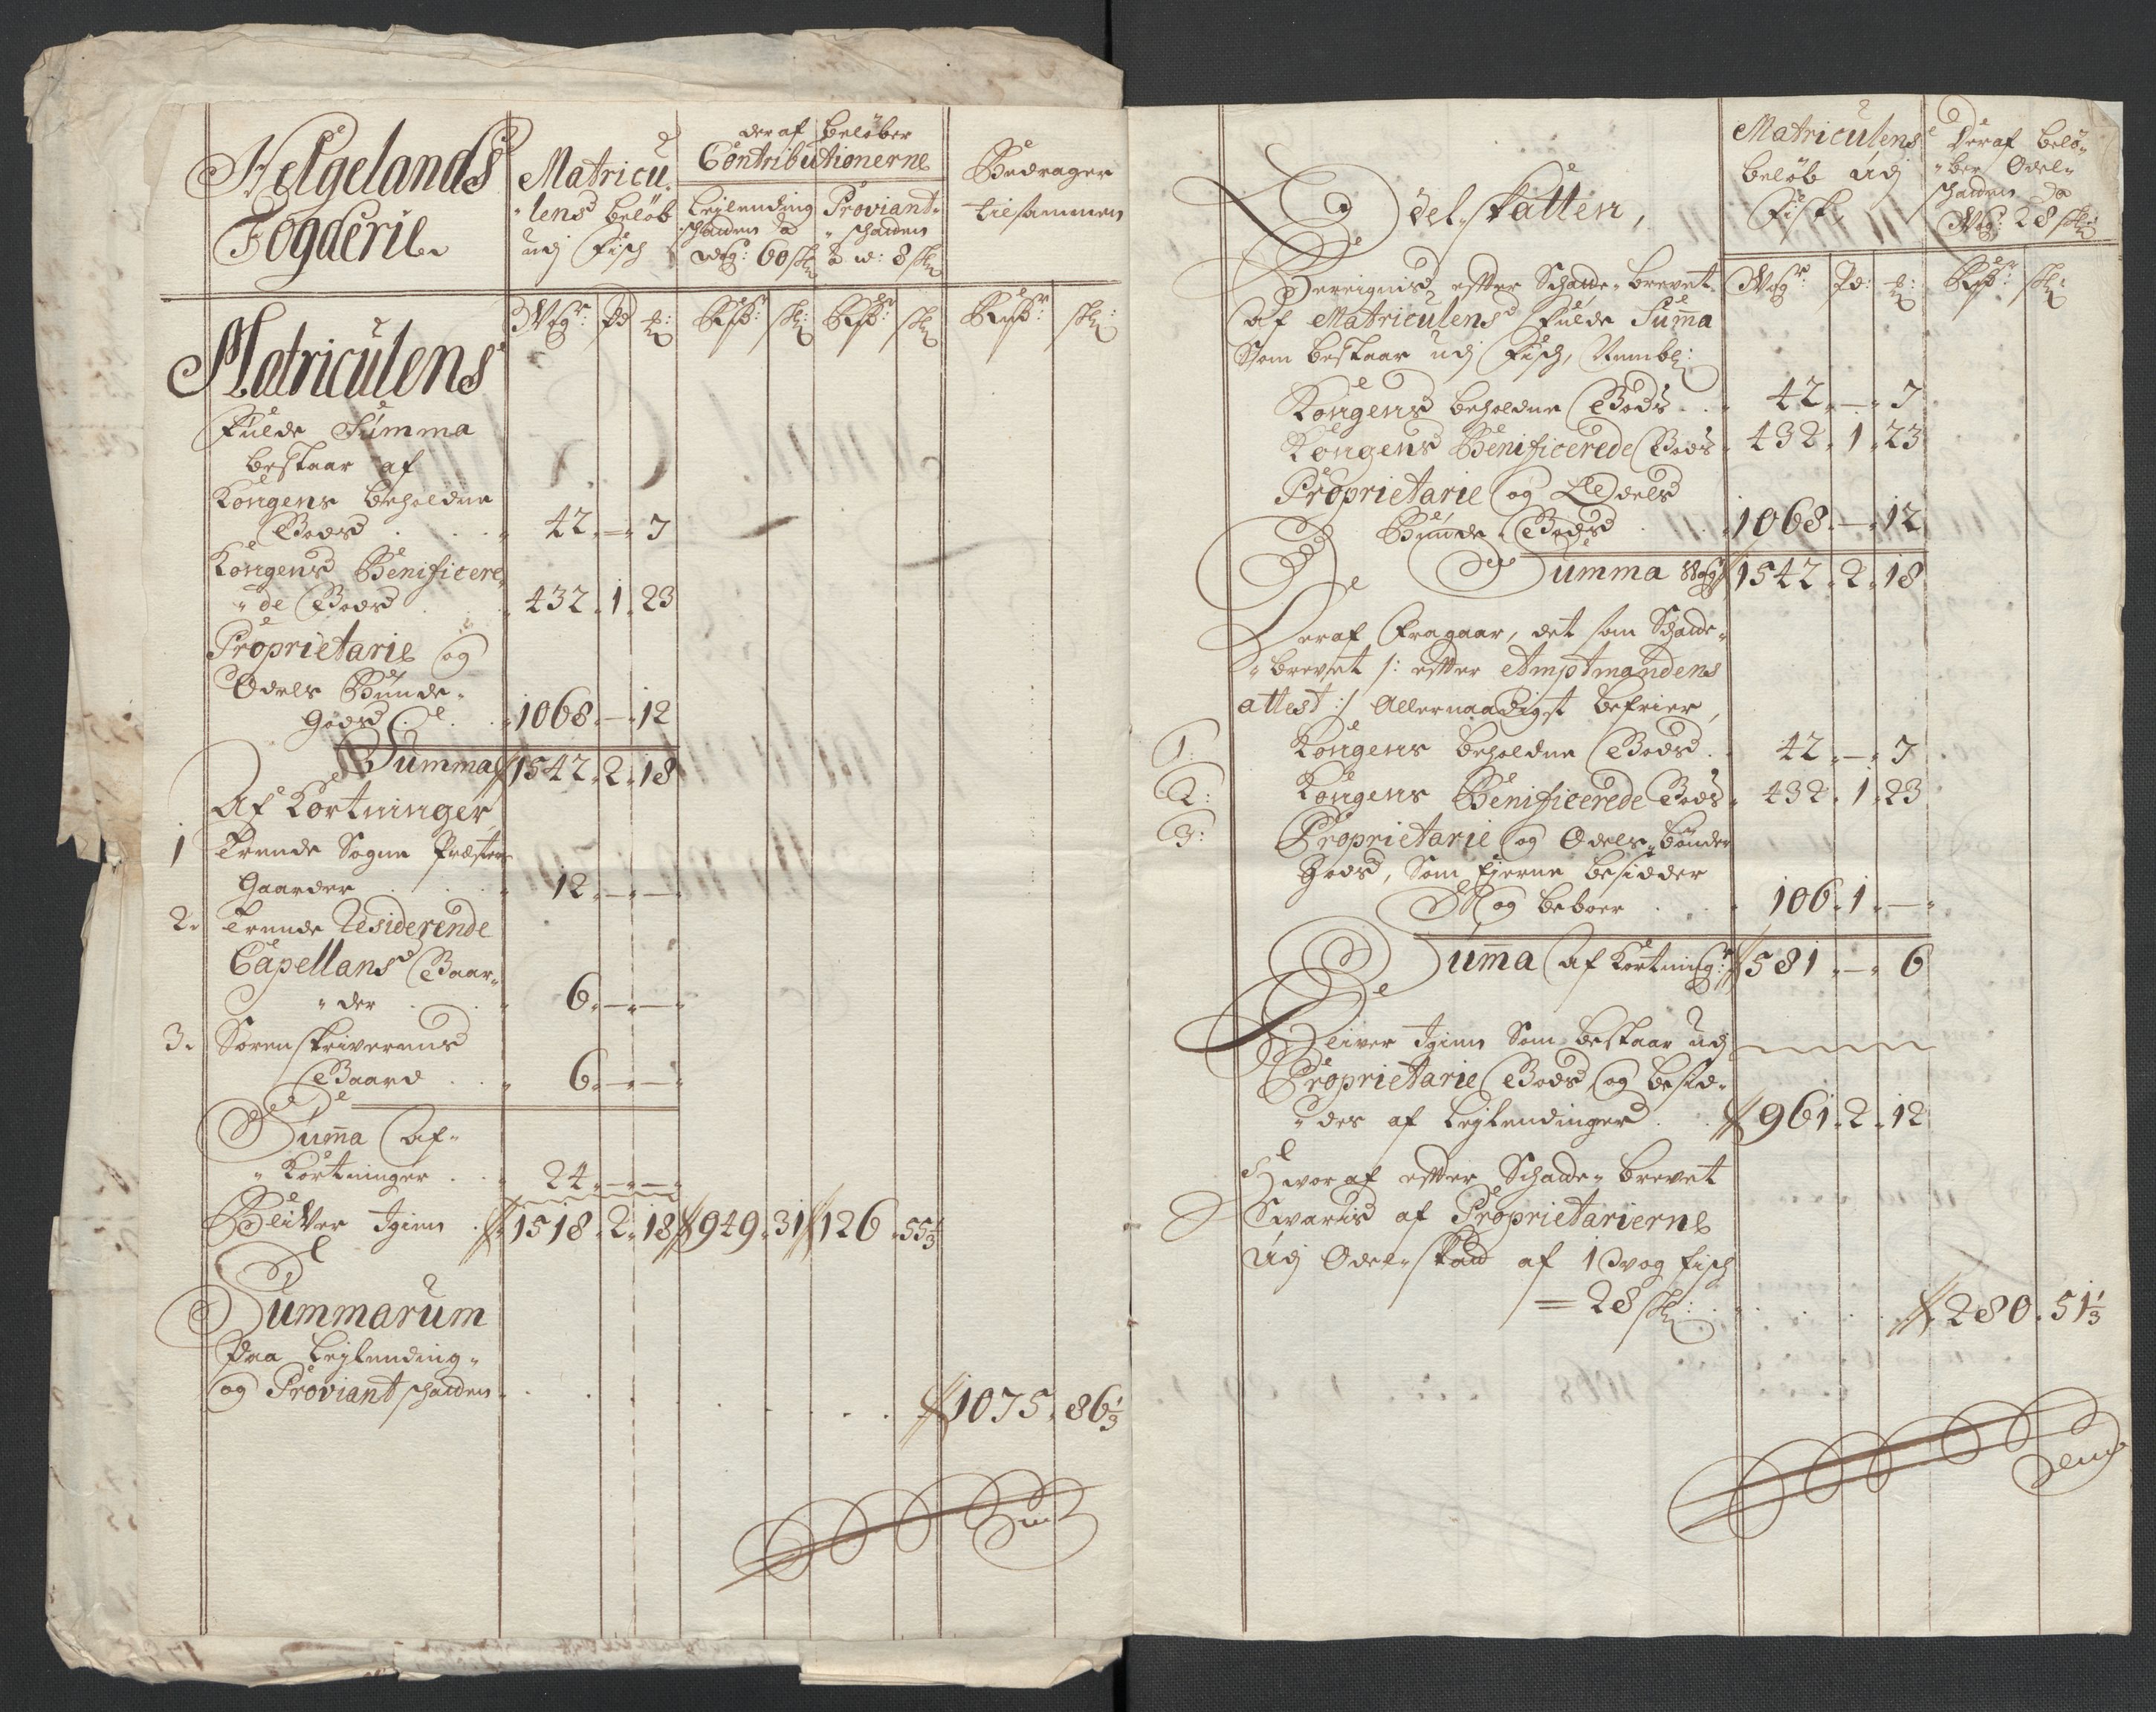 Helgelands
Fogderie
Matricu-
"lens beløb
udj Fisch
der af beløber
Contributionerne
Lejlending
schatten a
Wog: 60 sk:
Proviant-
"schatten
a w: 8 sk:
Bedrager
tilsammen
Wogr: Pd: ℔: Rdr: sk: Rdr: sk: Rdr: sk:
Matriculens
Fulde Summa
bestaar af
Kongens beholdne
Gods . . . 42 " — " 7
Kongens Benificere-
"de Gods . . 432 " 1 " 23
Proprietarie og
Odels Bunde-
Gods . . . 1068 " — " 12
Summa 1542 " 2 " 18
Af Kortninger
1 Trende Sogne Præste
Gaarder . . . 12 " — " — "
2. Trende Residerende
Capellans Gaar-
"der . . 6 " — " — "
3. Sorenskriverens
Gaard . . 6 " — " — "
Suma Af-
"Kortninger . . 24 " — " — "
Bliver Igien . 1518 " 2 " 18 949 " 31 126 " 55 1/3
Summarum
Paa Lejlending-
og Proviant schatten . . . . . . 1075 " 86 1/3
Odel-skatten,
Matriculens
beløb udj
Fisk,
Deraf belø-
"ber Odel-
schatten a
Wog: 28 sk:
Wogr: Pd: ℔: Rdr: sk:
Bereignis efter Schatte-brevet
af Matriculens Fulde Suma
Som bestaar udj Fisch, Nembl:
Kongens beholdne Gods . . 42 " — " 7
Kongens Benificerede Gods 432 " 1 " 23
Proprietarie og Odels
Bunde-Gods . . 1068 " — " 12
Summa Wog 1542 " 2 " 18
Deraf Fragaar, det som Schatte-
"brevet /: efter Amptmandens
attest :/ Allernaadigst befrier,
1: Kongens beholdne Gods . 42 " — " 7
2: Kongens Benificerede Gods 432 " 1 " 23
3: Proprietarie og Odels-bønder
Gods, Som Ejerne besidder
og beboer . . . 106 " 1 " — "
Suma Af Kortning: 581 " — " 6
Bliver Igien Som bestaar udj
Proprietarie Gods og besid-
"des af Lejlendinger . . 961 " 2 " 12
Hvoraf efter Schatte-brevet
Svaris af Proprietarierne
Udj Odel-skatt af 1 Vog fisch
= 28 sk: . . . . . 280 " 51 1/3